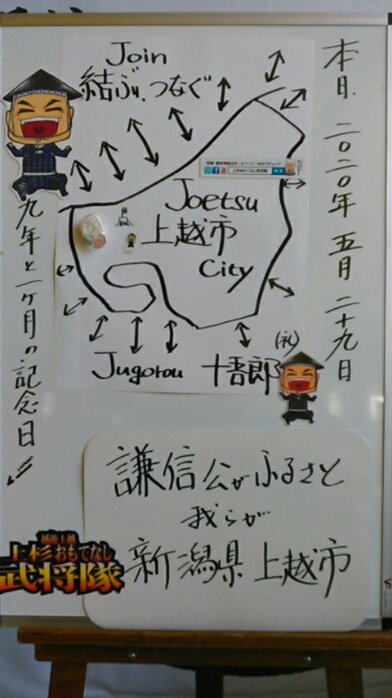 本日、二〇二〇年 五月 二十九日
Join
結ぶ、つなぐ
Joetsu
上越市
City
Jugorou 十吾郎
(礼)
九年と一ヶ月の記念日
謙信公がふるさと
我らが
新潟県 上越市
越後上越
上杉おもてなし
武将隊